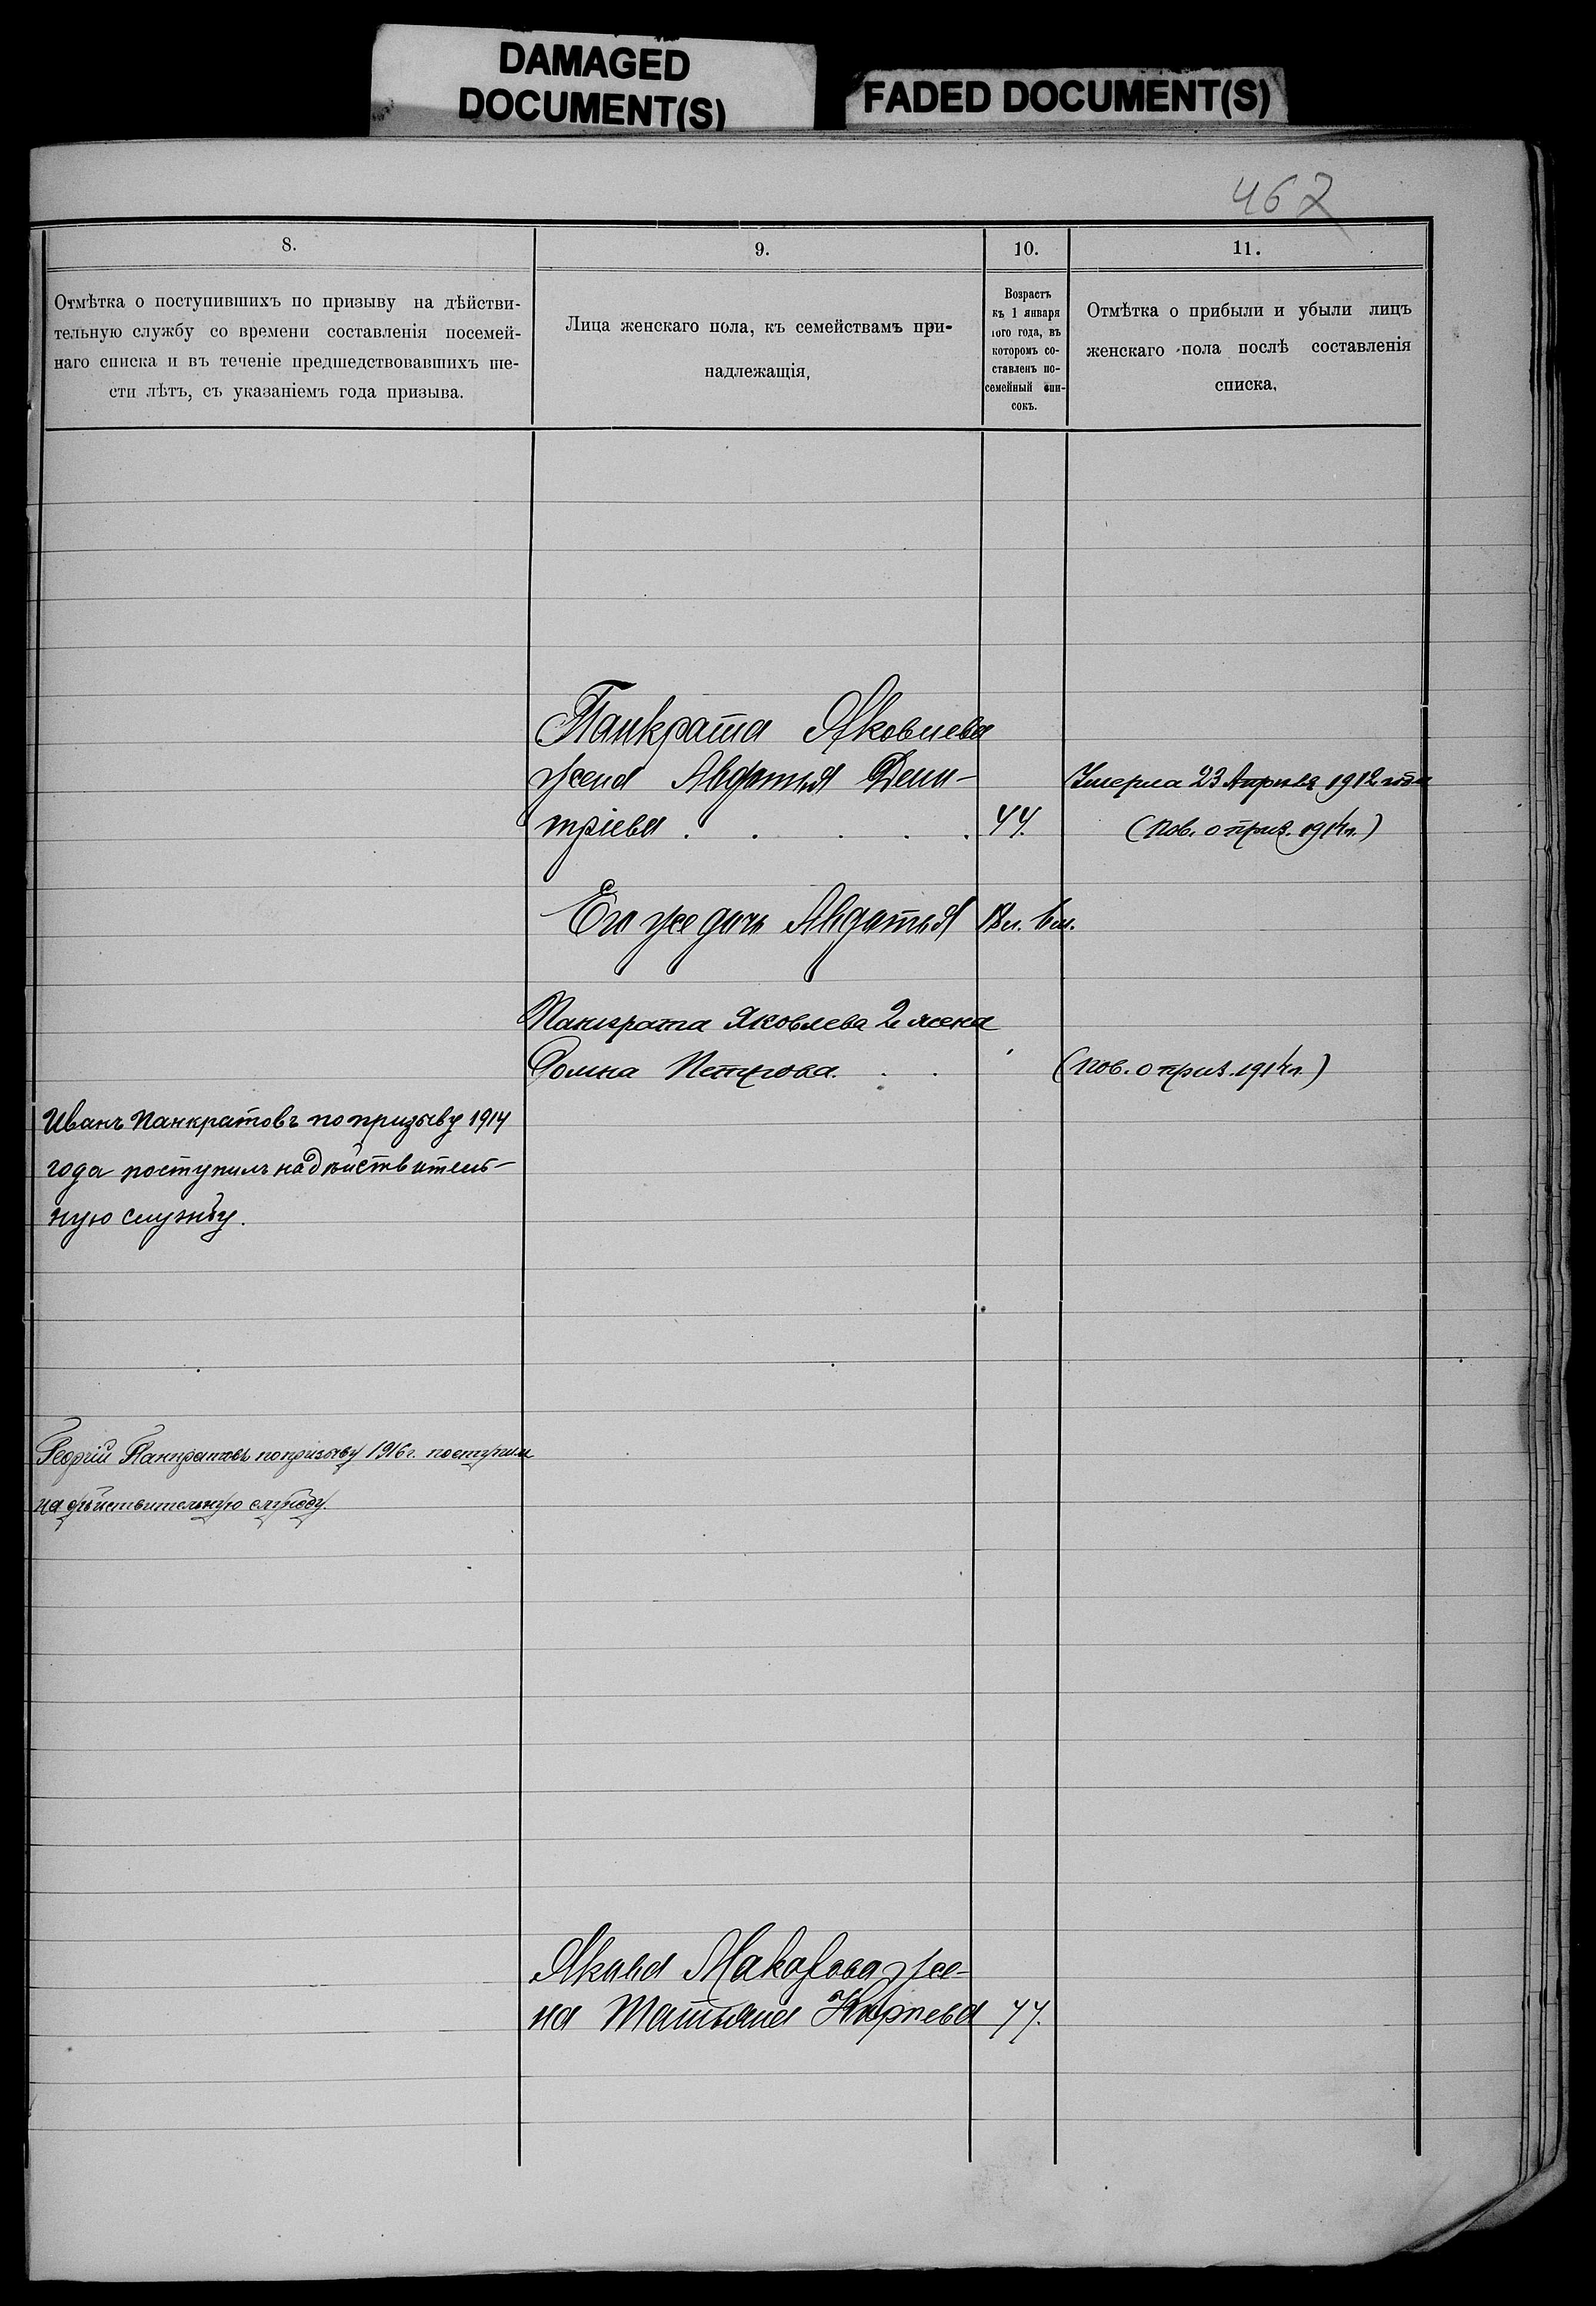 DAMAGED
DOCUMENT(S)
FADED DOCUMENT(S)
462
8.
9.
10.
11.
Отмѣтка о поступившихъ по призыву на дѣйстви-
тельную службу со времени составленія посемей-
наго списка и въ теченіе предшедствовавшихъ ше-
сти лѣтъ, съ указаніемъ года призыва.
Лица женскаго пола, къ семействамъ при-
надлежащія,
Возрастъ
къ 1 января
того года, въ
которомъ со-
ставленъ по-
семейный спи-
сокъ.
Отмѣтка о прибыли и убыли лицъ
женскаго пола послѣ составленія
списка,
Панкрата Яковлева
жена Авдотья Дми-
тріева . . . . . 44.
Умерла 23 Апрѣля 1912 года
(пов. о приз. 1914 г.)
Его же дочь Авдотья 18 л. 6 м.
Панкрата Яковлева 2я жена
Домна Петрова . .
(пов. о приз. 1914 г.)
Иванъ Панкратовъ по призыву 1914
года поступилъ на дѣйствитель-
ную службу.
Георгій Панкратовъ по призыву 1916 г. поступилъ
на дѣйствительную службу.
Якова Макарова же-
на Татьяна Карпева 44.